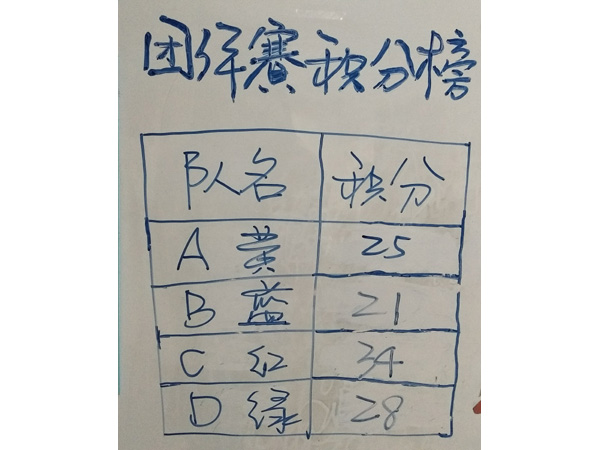 团体赛积分榜
队名 积分
A 黄 25
B 蓝 21
C 红 34
D 绿 28